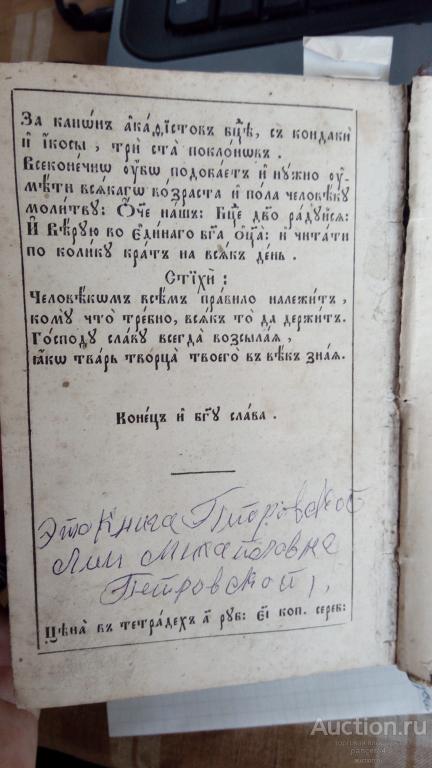 За канѡ́нъ а҆ка́ѳїстовъ бц҃ѣ, съ кондаки̑
и҆ і҆́косы, три̑ ста̀ покло́нѡвъ.
Всеконе́чнѡ ᲂу҆́бѡ подоба́етъ и҆ нꙋ́жно ᲂу҆-
мѣ́ти всѧ́кагѡ во́зраста и҆ по́ла человѣ́кꙋ
моли́твꙋ: Ѻ҆́ч҃е на́шъ: Бц҃е дв҃о ра́дꙋйсѧ:
И҆ Вѣ́рꙋю во є҆ди́наго бг҃а ѻ҆ц҃а̀: и҆ чита́ти
по коли́кꙋ кра́тъ на всѧ́къ де́нь.
Стїхѝ:
Человѣ́кѡмъ всѣ̑мъ пра́вило належи́тъ,
комꙋ̀ что̀ тре́бно, всѧ́къ то̀ да де́ржитъ.
Го́сподꙋ сла́вꙋ всегда̀ возсыла́ѧ,
ꙗ҆́кѡ тва́рь творца̀ твоего̀ въ вѣ́къ зна́ѧ.
Коне́цъ и҆ бг҃ꙋ сла́ва.
Это Книга Питровской
Михайловна
Петровской,
Цѣна̀ въ тетра́дехъ а҃ рꙋб: є҃і коп. сереб:
Auction.ru
торговая площадка
pancer64
auction.ru